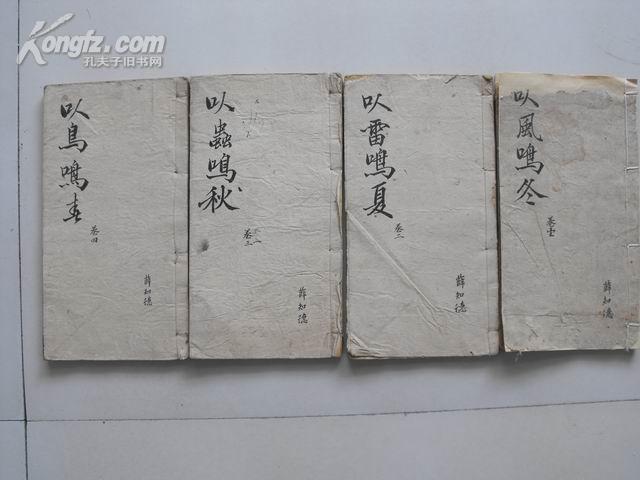 Kongfz.com
孔夫子旧书网
以風鳴冬
卷壹
薛知德
以雷鳴夏
卷二
薛知德
以蟲鳴秋
卷三
薛知德
以鳥鳴春
卷四
薛知德